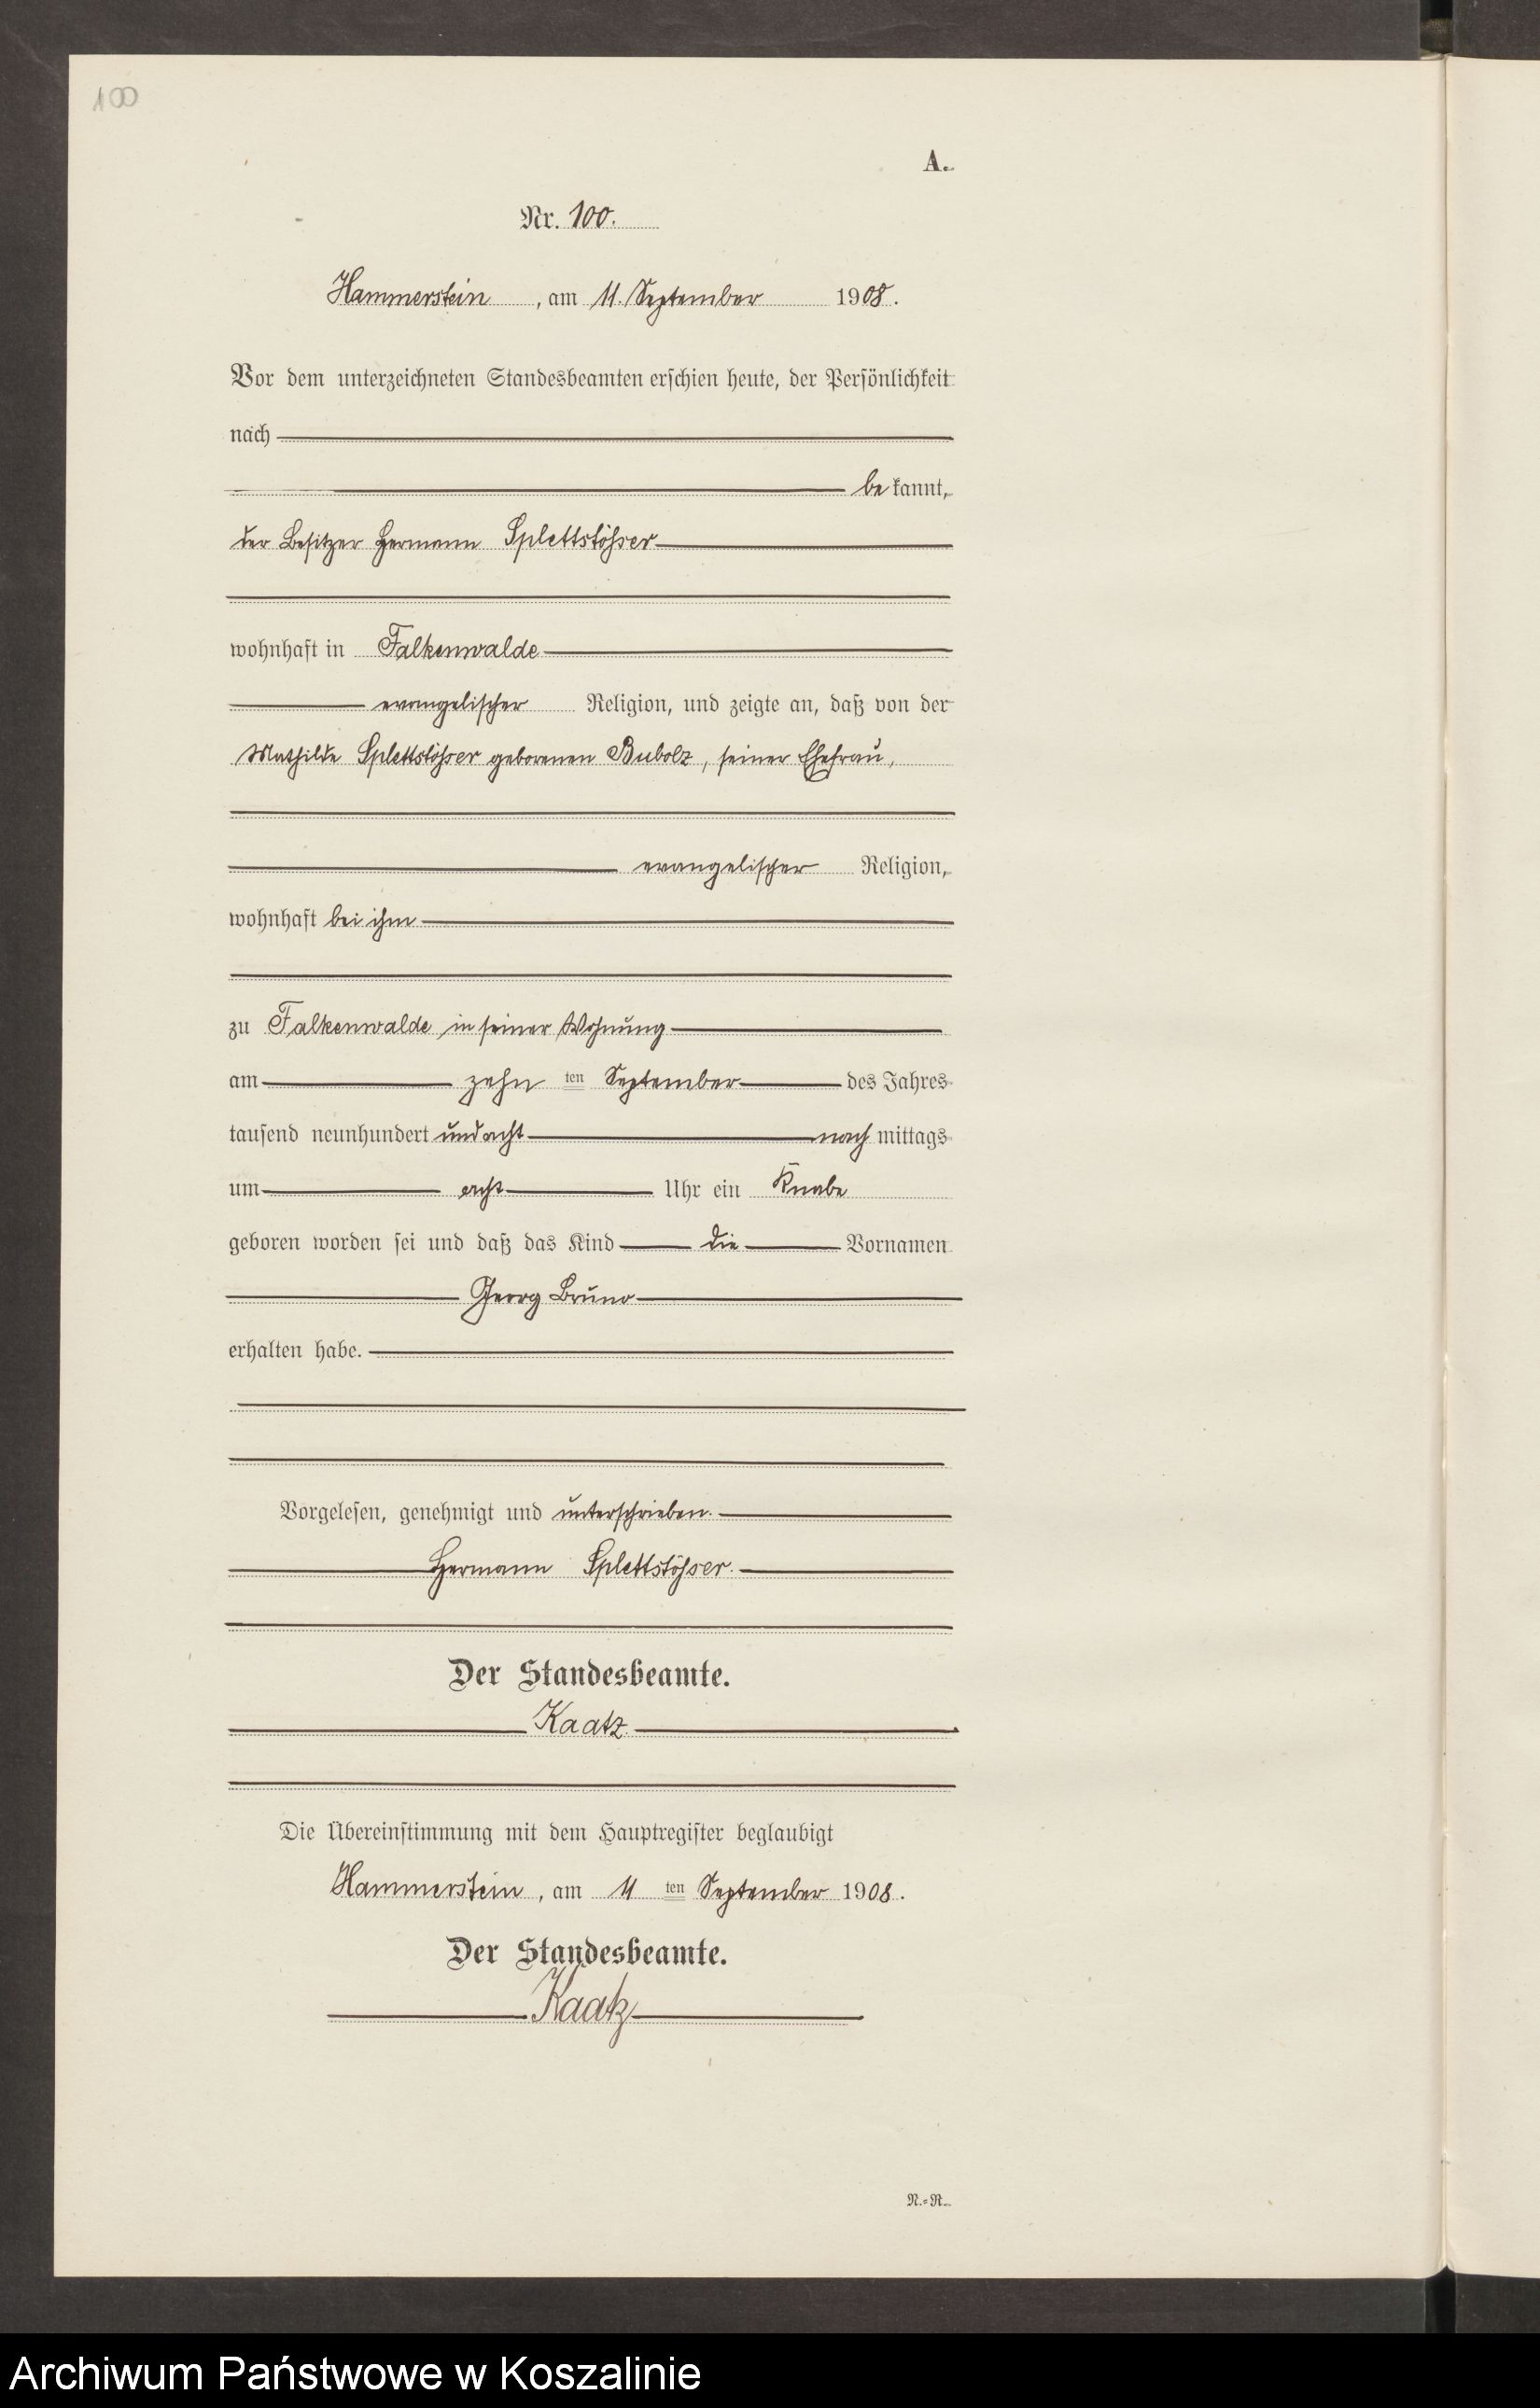 100
A.
Nr. 100.
Hammerstein, am 11. September 1908.
Vor dem unterzeichneten Standesbeamten erschien heute, der Persönlichkeit
nach
bekannt,
der Besitzer Hermann Splettstößer
wohnhaft in Falkenwalde
evangelischer Religion, und zeigte an, daß von der
Mathilde Splettstößer geborenen Bubolz, seiner Ehefrau,
evangelischer Religion,
wohnhaft bei ihm
zu Falkenwalde in seiner Wohnung
am zehn ten September des Jahres
tausend neunhundert und acht nachmittags
um acht Uhr ein Knabe
geboren worden sei und daß das Kind die Vornamen
Georg Bruno
erhalten habe.
Vorgelesen, genehmigt und unterschrieben.
Hermann Splettstößer.
Der Standesbeamte.
Kaatz.
Die Übereinstimmung mit dem Hauptregister beglaubigt
Hammerstein, am 11 ten September 1908.
Der Standesbeamte.
Kaatz
N.=R.
Archiwum Państwowe w Koszalinie